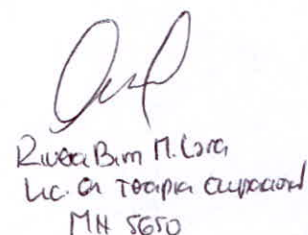 Rivera Bim M. Lara
Lic. en Terapia Ocupacional
MN 5650